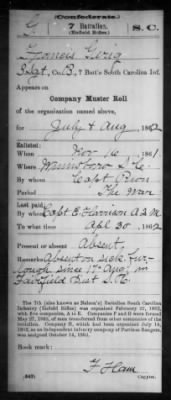 (Confederate.)
G 7 Battalion, S. C.
(Enfield Rifles.)
Francis
Sgt, Co. B, 7 Batt'n South Carolina Inf.
Appears on
Company Muster Roll
of the organization named above,
for July & Aug, 1862
Enlisted:
When Nov 16, 1861.
Where Winnsboro S. C.
By whom Capt
Period The War
Last paid:
By whom Capt E. Harrison A Q M
To what time Apl 30, 1862
Present or absent Absent.
Remarks: Absent on sick fur-
lough since 17 Aug. in
Fairfield Dist S. C.
The 7th (also known as Nelson's) Battalion South Carolina
Infantry (Enfield Rifles) was organized February 22, 1862,
with five companies, A to E. Companies F and G were formed
May 27, 1862, of men transferred from other companies of the
battalion. Company H, which had been organized July 14,
1862, as an independent company of Partisan Rangers, was
assigned October 14, 1862.
Book mark:
F Ham
(642) Copyist.